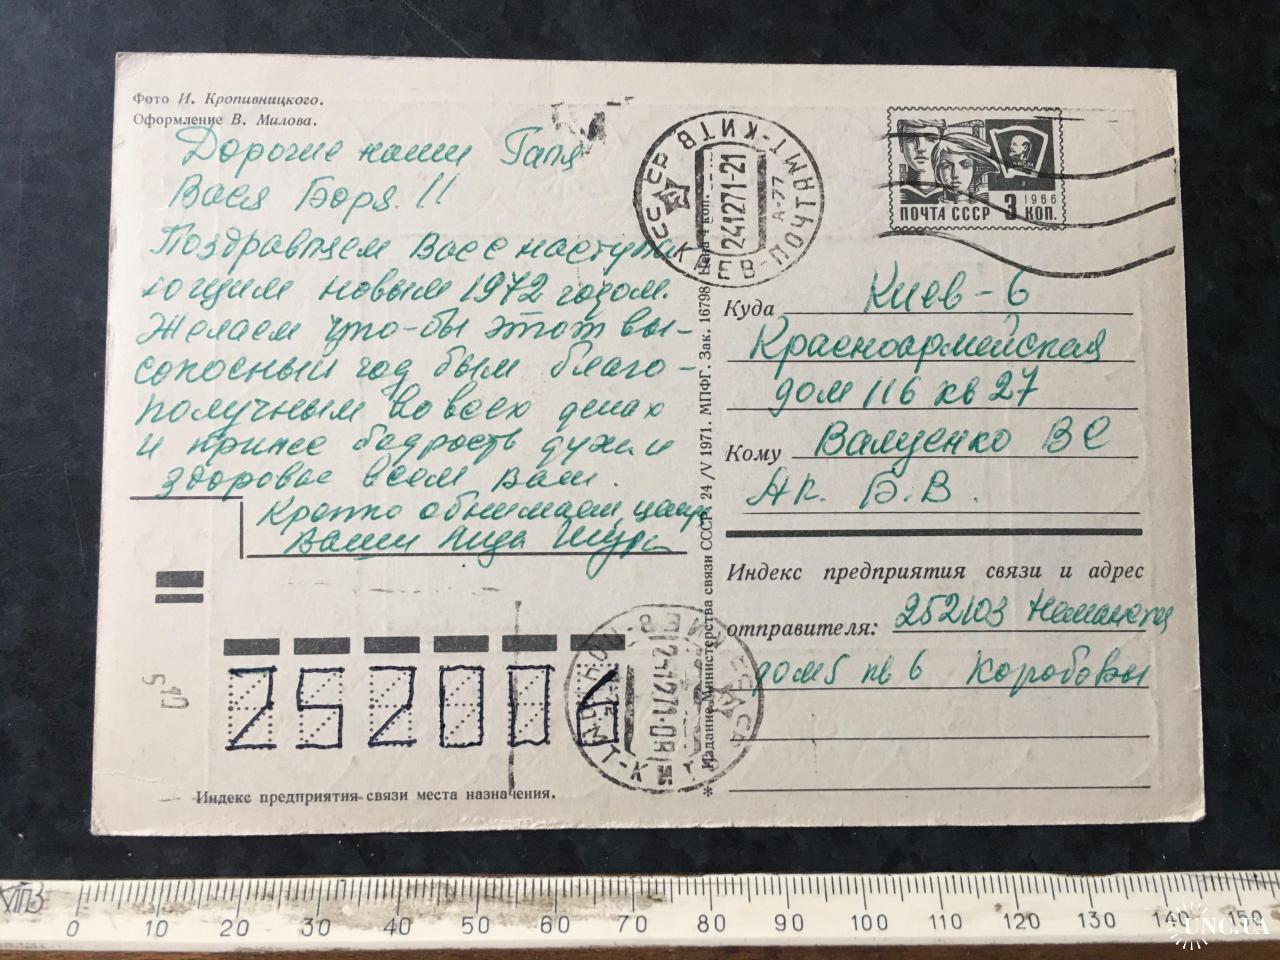 Фото И. Кропивницкого.
Оформление В. Милова.
Дорогие наши Галя
Вася Боря. !!
Поздравляем Вас с наступа
ющим новым 1972 годом.
Желаем что-бы этот вы-
сокосный год был благо-
получным во всех делах
и принес бодрость духа и
здоровье всем Вам.
Крепко обнимаем, целуем
Ваши Лида Шура
252006
Индекс предприятия связи места назначения.
Издание Министерства связи СССР. 24/V 1971. МПФГ. Зак. 16798. Цена 4 коп.
СССР КИЕВ-ПОЧТАМТ-КИТВ
241271-21
А-77
ПОЧТА СССР 3 КОП.
1966
ВЛКСМ
Куда Киев - 6
Красноармейская
дом 116 кв 27
Кому Валуенко В С
Б.В.
Индекс предприятия связи и адрес
отправителя: 252103
дом 5 кв 6 Коробовы
241271-08
0 10 20 30 40 50 60 70 80 90 100 110 120 130 140 150
UNC.UA